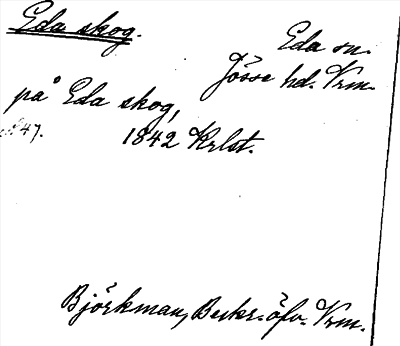 Eda skog.
Eda sn.
Jösse hd. Vrm.
på Eda skog,
47. 1842 Krlst.
Björkman, Beskr. öfv. Vrm.